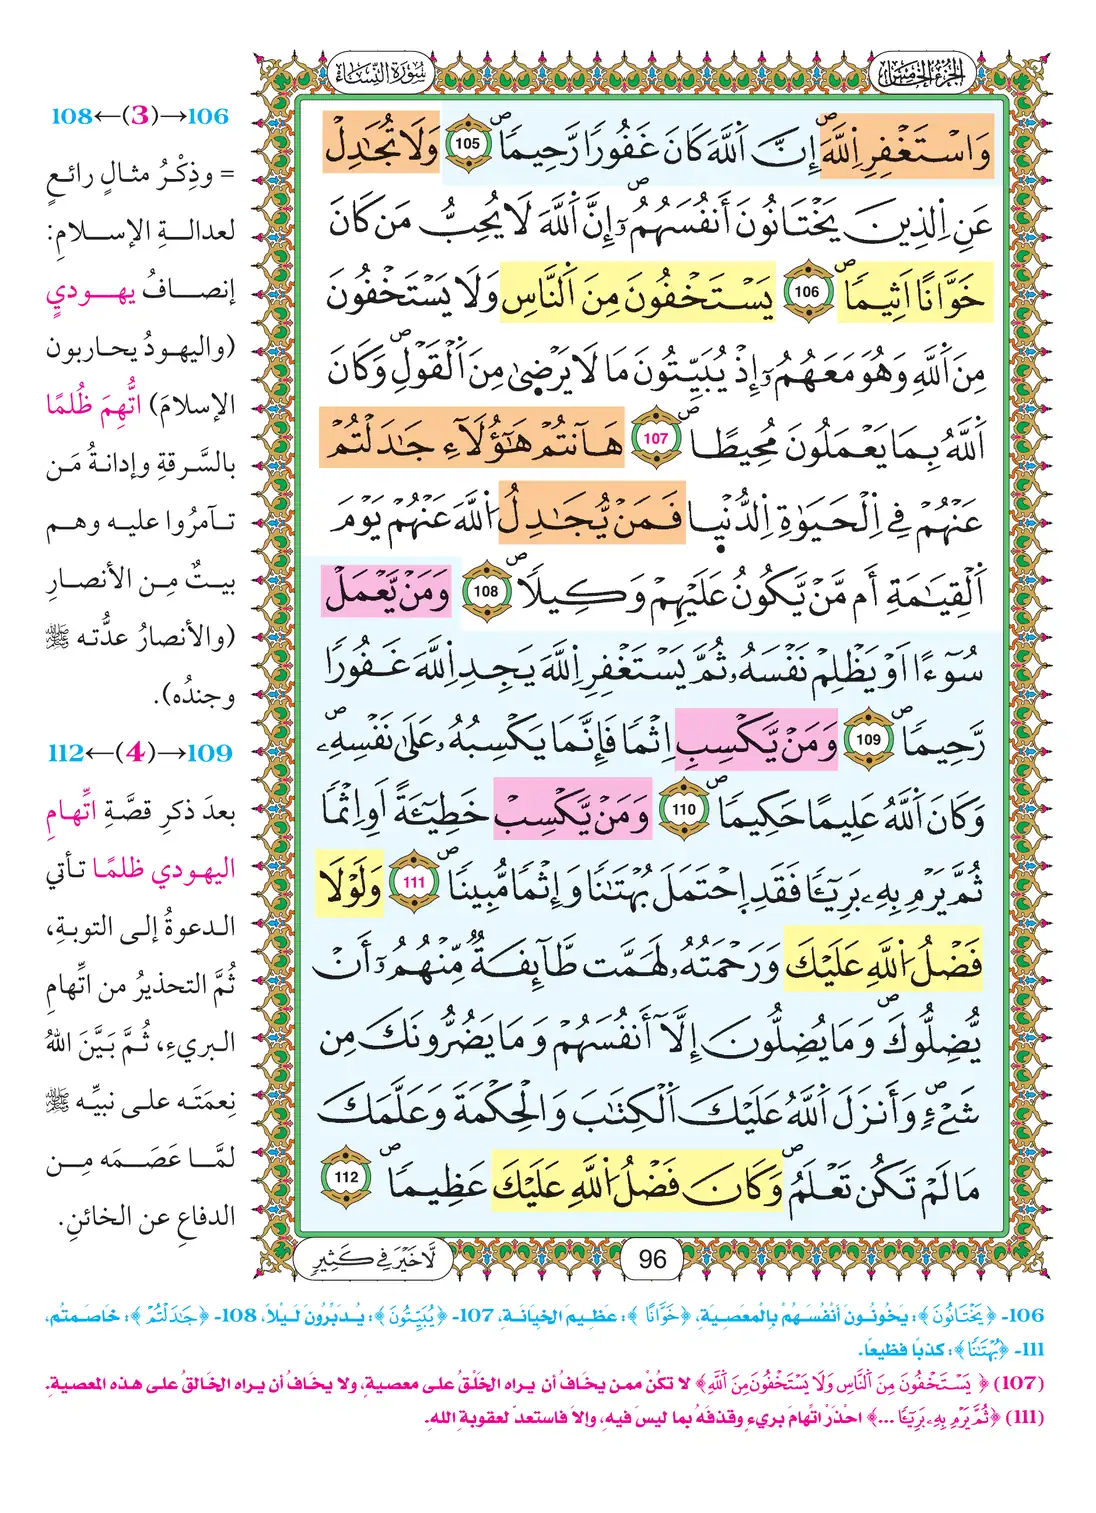 الجزء الخامس
سورة النساء
وَاسْتَغْفِرِ اِللَّهَۖ إِنَّ اَللَّهَ كَانَ غَفُورًا رَّحِيمًاۖ 105 وَلَا تُجَٰدِلْ
عَنِ اِلذِينَ يَخْتَانُونَ أَنفُسَهُمُۥٓۖ إِنَّ اَللَّهَ لَا يُحِبُّ مَن كَانَ
خَوَّانًا اَثِيمًاۖ 106 يَسْتَخْفُونَ مِنَ اَلنَّاسِ وَلَا يَسْتَخْفُونَ
مِنَ اَللَّهِ وَهُوَ مَعَهُمُۥٓ إِذْ يُبَيِّتُونَ مَا لَا يَرْضَىٰ مِنَ اَلْقَوْلِۖ وَكَانَ
اَللَّهُ بِمَا يَعْمَلُونَ مُحِيطًاۖ 107 هَآنتُمْ هَٰٓؤُلَآءِ جَٰدَلْتُمْ
عَنْهُمْ فِي اِلْحَيَوٰةِ اِلدُّنْيٜا فَمَنْ يُّجَٰدِلُ اُللَّهَ عَنْهُمْ يَوْمَ
اَلْقِيَٰمَةِ أَم مَّنْ يَّكُونُ عَلَيْهِمْ وَكِيلًاۖ 108 وَمَنْ يَّعْمَلْ
سُوٓءًا اَوْ يَظْلِمْ نَفْسَهُۥ ثُمَّ يَسْتَغْفِرِ اِللَّهَ يَجِدِ اِللَّهَ غَفُورًا
رَّحِيمًاۖ 109 وَمَنْ يَّكْسِبِ اِثْمًا فَإِنَّمَا يَكْسِبُهُۥ عَلَىٰ نَفْسِهِۦۖ
وَكَانَ اَللَّهُ عَلِيمًا حَكِيمًاۖ 110 وَمَنْ يَّكْسِبْ خَطِيٓـَٔةً اَوِ اِثْمًا
ثُمَّ يَرْمِ بِهِۦ بَرِيٓـًٔا فَقَدِ اِحْتَمَلَ بُهْتَٰنًا وَإِثْمًا مُّبِينًاۖ 111 وَلَوْلَا
فَضْلُ اُللَّهِ عَلَيْكَ وَرَحْمَتُهُۥ لَهَمَّت طَّآئِفَةٌ مِّنْهُمُۥٓ أَنْ
يُّضِلُّوكَۖ وَمَا يُضِلُّونَ إِلَّآ أَنفُسَهُمْ وَمَا يَضُرُّونَكَ مِن
شَيْءٍۖ وَأَنزَلَ اَللَّهُ عَلَيْكَ اَلْكِتَٰبَ وَالْحِكْمَةَ وَعَلَّمَكَ
مَا لَمْ تَكُن تَعْلَمُۖ وَكَانَ فَضْلُ اُللَّهِ عَلَيْكَ عَظِيمًاۖ 112
96
لَّا خَيْرَ فِي كَثِيرٍ
108←(3)→106
= وذِكْرُ مثالٍ رائعٍ
لعدالةِ الإسلامِ:
إنصافُ يهوديٍ
(واليهودُ يحاربون
الإسلامَ) اتُّهِمَ ظُلمًا
بالسَّرقةِ وإدانةُ مَن
تآمرُوا عليه وهم
بيتٌ مِن الأنصارِ
(والأنصارُ عدُّته ﷺ
وجندُه).
112←(4)→109
بعدَ ذكرِ قصَّةِ اتِّهامِ
اليهودي ظلمًا تأتي
الدعوةُ إلى التوبةِ،
ثُمَّ التحذيرُ من اتِّهامِ
البريءِ، ثُمَّ بَيَّنَ اللهُ
نِعمَتَه على نبيِّه ﷺ
لمَّا عَصَمَه مِن
الدفاعِ عن الخائنِ.
106- ﴿يَخْتَانُونَ﴾: يَخُونُونَ أَنْفُسَهُمْ بِالْمَعصِيَةِ، ﴿خَوَّانًا﴾: عَظِيمَ الخِيَانَةِ، 107- ﴿يُبَيِّتُونَ﴾: يُدَبِّرُونَ لَيْلاً، 108- ﴿جَٰدَلْتُمْ﴾: خَاصَمتُم،
111- ﴿بُهْتَٰنًا﴾: كَذبًا فظيعًا.
(107) ﴿يَسْتَخْفُونَ مِنَ اَلنَّاسِ وَلَا يَسْتَخْفُونَ مِنَ اَللَّهِ﴾ لا تكُنْ ممن يخافُ أن يراه الخَلْقُ على معصيةٍ، ولا يخافُ أن يراه الخالقُ على هذه المعصيةِ.
(111) ﴿ثُمَّ يَرْمِ بِهِۦ بَرِيٓـًٔا ...﴾ احْذَرْ اتِّهامَ بريءٍ وقذفَهُ بما ليسَ فيه، وإلا فاستعدّ لعقوبةِ اللهِ.